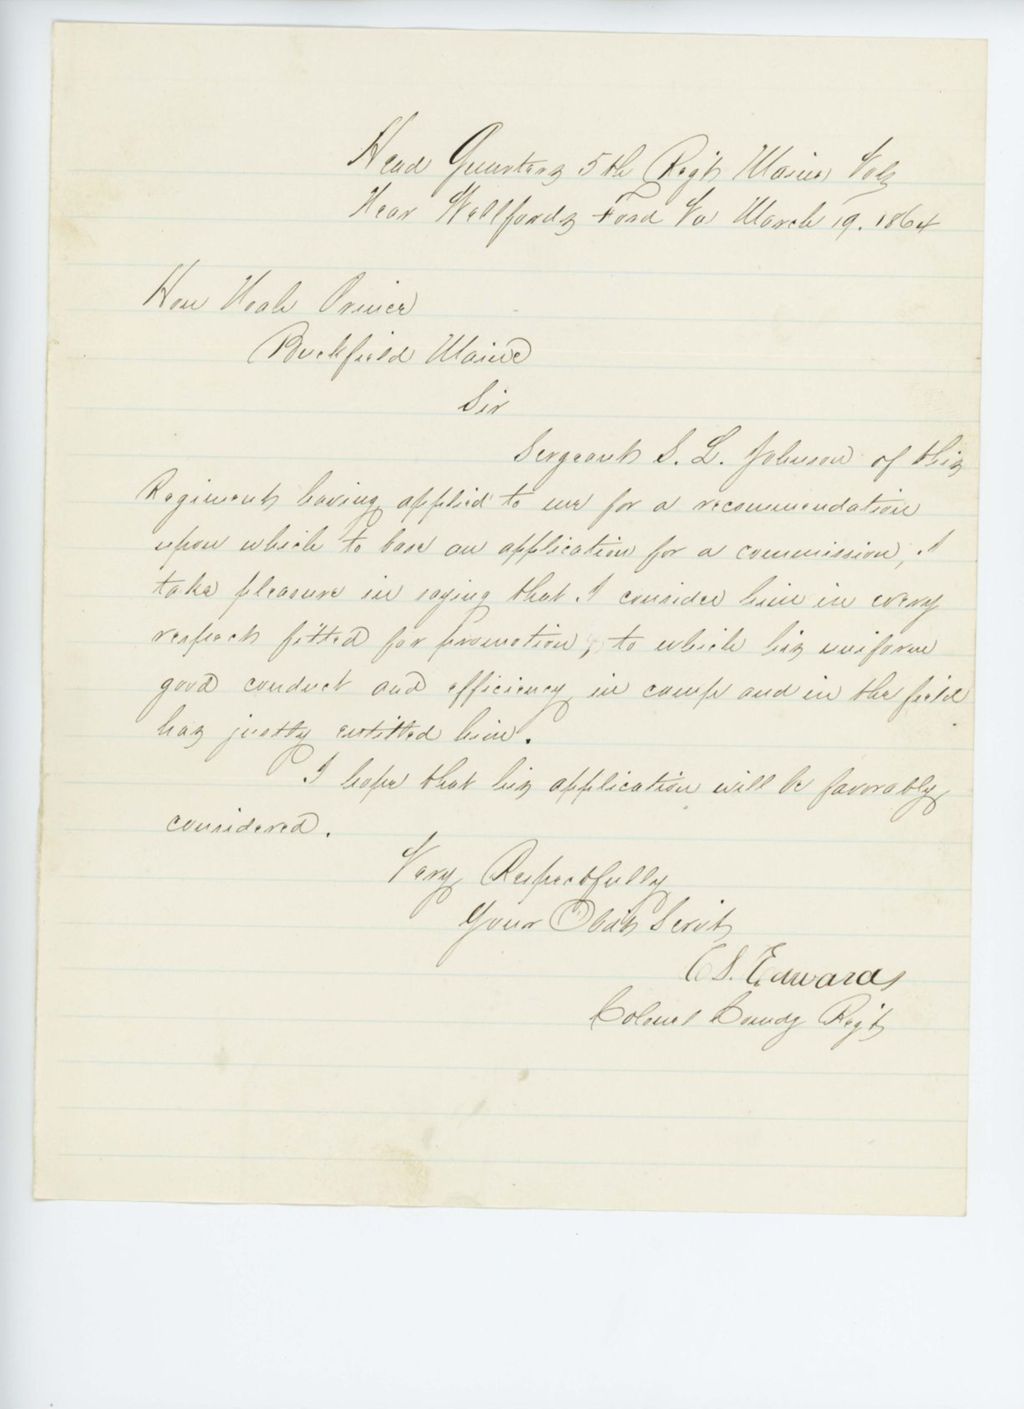 Head Quarters 5th Regt Maine Vols
Near Wellfords Ford Va March 19. 1864
Hon Noah Prince
Buckfield Maine
Sir
Sergeant S. L. Johnson of this
Regiment having applied to me for a recommendation
upon which to base an application for a commission, I
take pleasure in saying that I consider him in every
respect fitted for promotion, to which his uniform
good conduct and efficiency in camp and in the field
has justly entitled him.
I hope that his application will be favorably
considered.
Very Respectfully
Your Obdt Servt
C S. Edwards
Colonel Comdg Regt